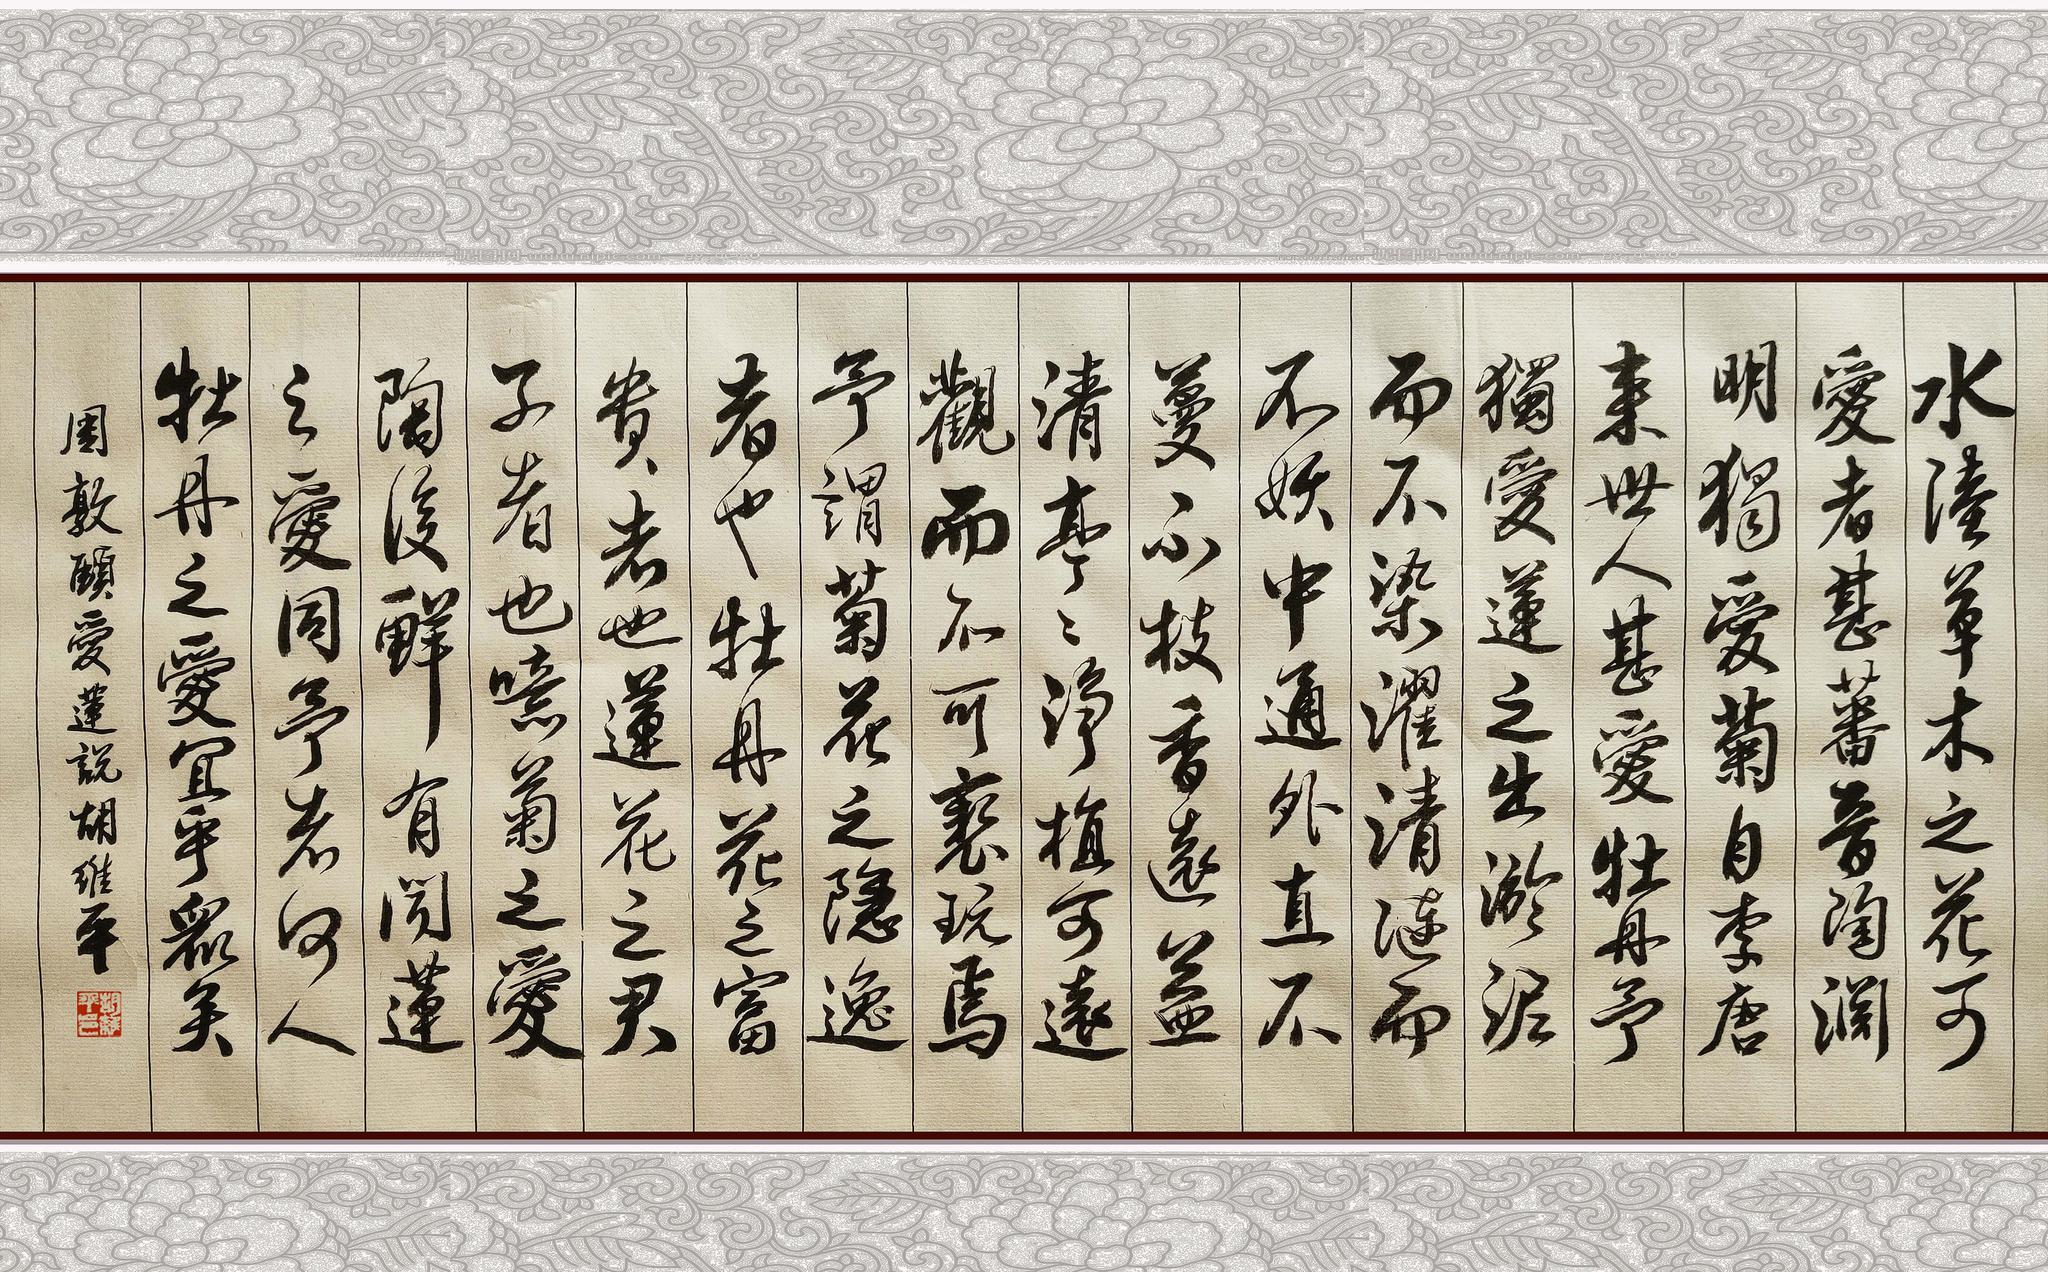 水陸草木之花可
愛者甚蕃晉陶淵
明獨愛菊自李唐
來世人甚愛牡丹予
獨愛蓮之出淤泥
而不染濯清漣而
不妖中通外直不
蔓不枝香遠益
清亭〻淨植可遠
觀而不可褻玩焉
予謂菊花之隱逸
者也牡丹花之富
貴者也蓮花之君
子者也噫菊之愛
陶後鮮有聞蓮
之愛同予者何人
牡丹之愛宜乎眾矣
周敦頤愛蓮說胡維平